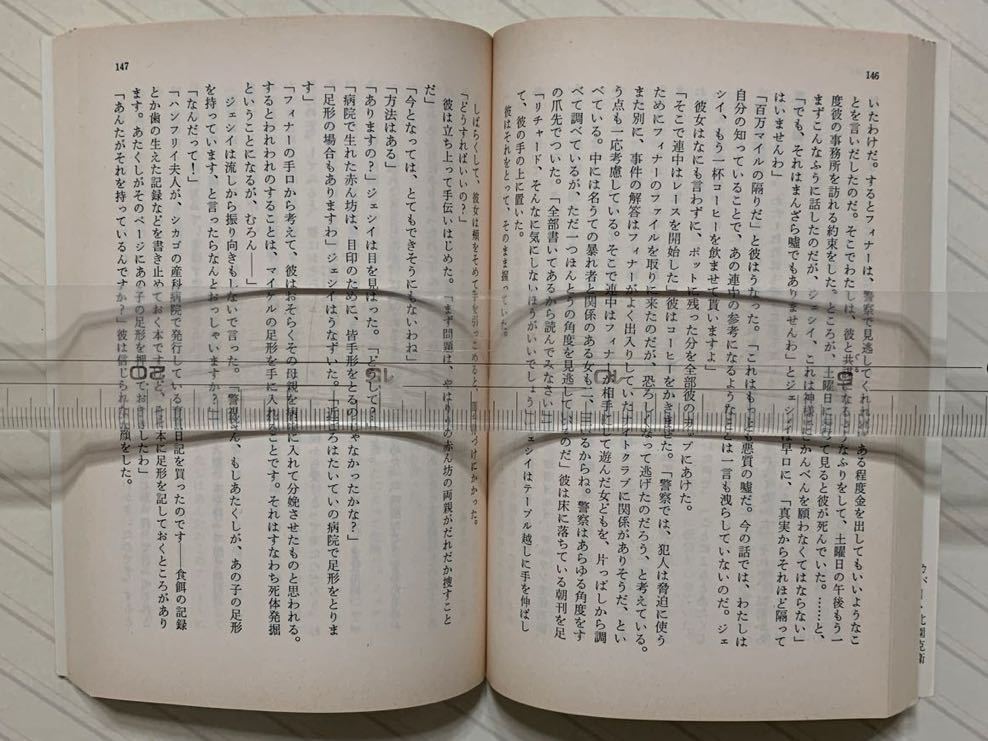 146
いたわけだ。するとフィナーは、警察で見逃してくれれば、ある程度金を出してもいいようなこ
とを言いだしたのだ。そこでわたしは、彼と共謀になるようなふりをして、土曜日の午後もう一
度彼の事務所を訪れる約束をした。ところが、土曜日に行って見ると彼が死んでいた。……と、
まずこんなふうに話したのだが、ジェシイ、これは神様にごかんべんを願わなくてはならない」
「でも、それはまんざら嘘でもありませんわ」とジェシイは早口に、「真実からそれほど隔って
はいませんわ」
「百万マイルの隔りだ」と彼はうなった。「これはもっとも悪質の嘘だ。今の話では、わたしは
自分の知っていることで、あの連中の参考になるようなことは一言も洩らしていないのだ。ジェ
シイ、もう一杯コーヒーを飲ませて貰いますよ」
彼女はなにも言わずに、ポットに残った分を全部彼のカップにあけた。
「そこで連中はレースを開始した」彼はコーヒーをかきまぜた。「警察では、犯人は脅迫に使う
ためにフィナーのファイルを取りに来たのだが、恐ろしくなって逃げたのだろう、と考えている。
また別に、事件の解答はフィナーがよく出入りしていたナイトクラブに関係がありそうだ、とい
う点も一応考慮している。そこで連中はフィナーが相手にして遊んだ女どもを、片っぱしから調
べている。中には名うての暴れ者と関係のある女も二、三いるからね。警察はあらゆる角度をす
べて調べているが、ただ一つほんとうの角度を見逃しているのだ」彼は床に落ちている朝刊を足
の爪先でつついた。「全部書いてあるから読んでみなさい」
「リチャード、そんなに気にしないほうがいいでしょう」ジェシイはテーブル越しに手を伸ばし
て、彼の手の上に置いた。
彼はそれをとって、そのまま握っていた。
147
しばらくして、彼女は頰をそめて手を引っこめると、
「どうすればいいの？」
彼は立ち上って手伝いはじめた。「まず問題は、やはりあの赤ん坊の両親がだれだか捜すこと
だ」
「今となっては、とてもできそうにもないわね」
「方法はある」
「ありますの？」ジェシイは目を見はった。「どうして？」
「病院で生れた赤ん坊は、目印のために、皆手形をとるのじゃなかったかな？」
「足形の場合もありますわ」ジェシイはうなずいた。「近ごろはたいていの病院で足形をとりま
す」
「フィナーの手口から考えて、彼はおそらくその母親を病院に入れて分娩させたものと思われる。
するとわれわれのすることは、マイケルの足形を手に入れることです。それはすなわち死体発掘
ということになるが、むろん――」
ジェシイは流しから振り向きもしないで言った。「警視さん、もしあたくしが、あの子の足形
を持っています、と言ったらなんとおっしゃいますか？」
「なんだって！」
「ハンフリイ夫人が、シカゴの産科病院で発行している育児日記を買ったのです――食餌の記録
とか歯の生えた記録などを書き止めておく本ですけど、その本に足形を記しておくところがあり
ます。あたくしがそのページにあの子の足形を押しておきましたわ」
「あんたがそれを持っているんですか？」彼は信じられない顔をした。
20
15
10